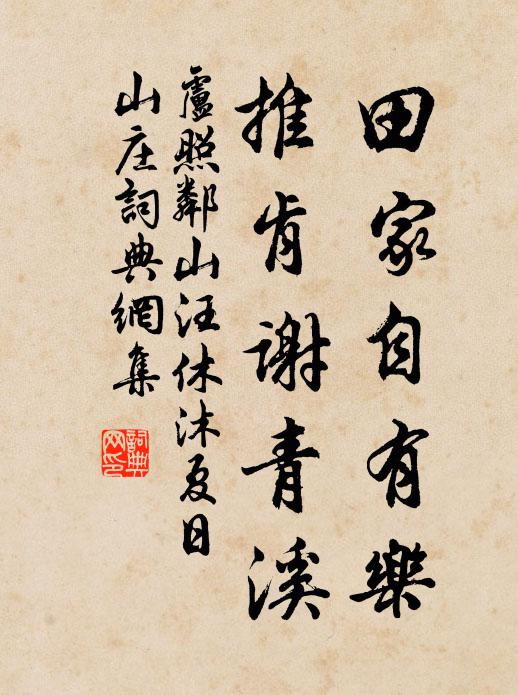 田家自有樂
推肯謝青溪
盧照鄰山汪休沐夏日
山庄詞典網集
詞典
网印